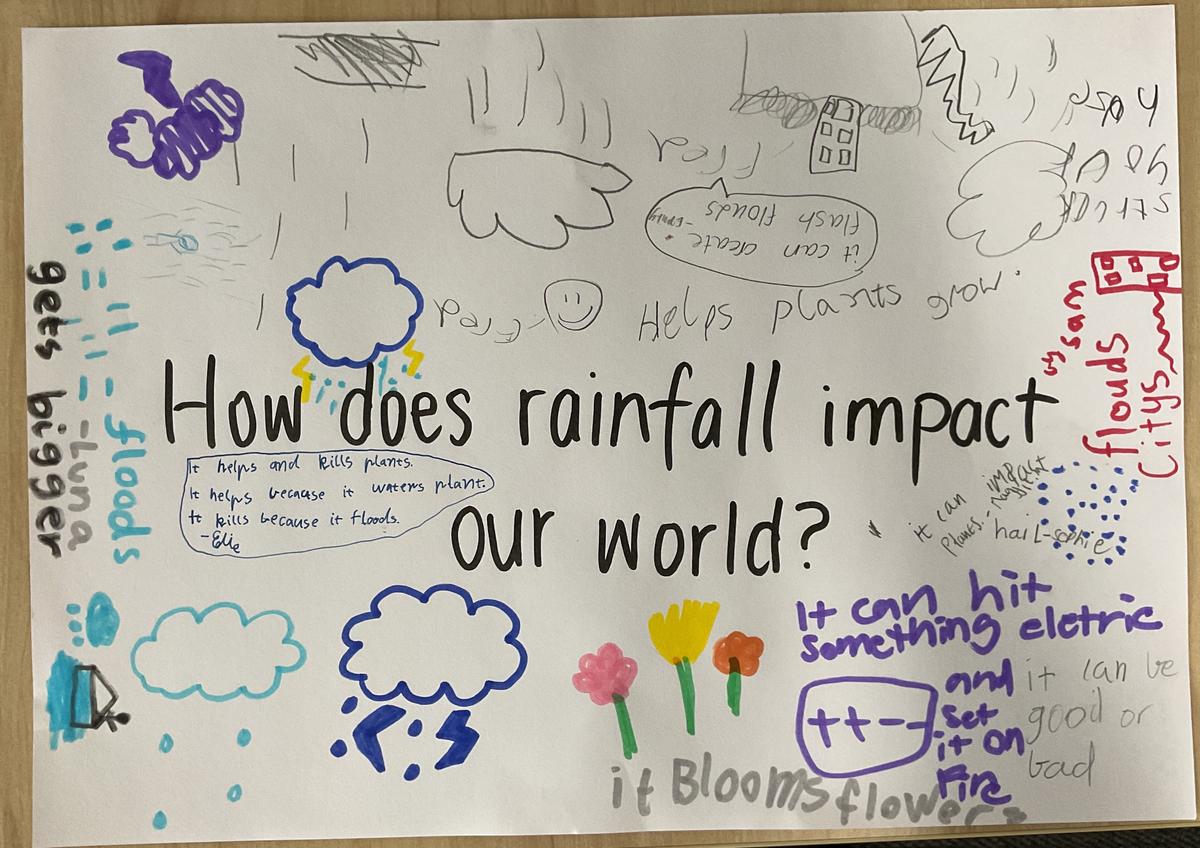 Helps plants grow.
-Fred
it can create
flash flouds
How does rainfall impact
our world?
It helps and kills plants.
It helps because it waters plant.
It kills because it floods.
-Elie
floods
-Luna
gets bigger
flouds
Citys
by sam
it can impact
plants.
hail-sophie
It can hit
something eletric
and
set
it on
Fire
++--
it can be
good or
bad
it Blooms flowers